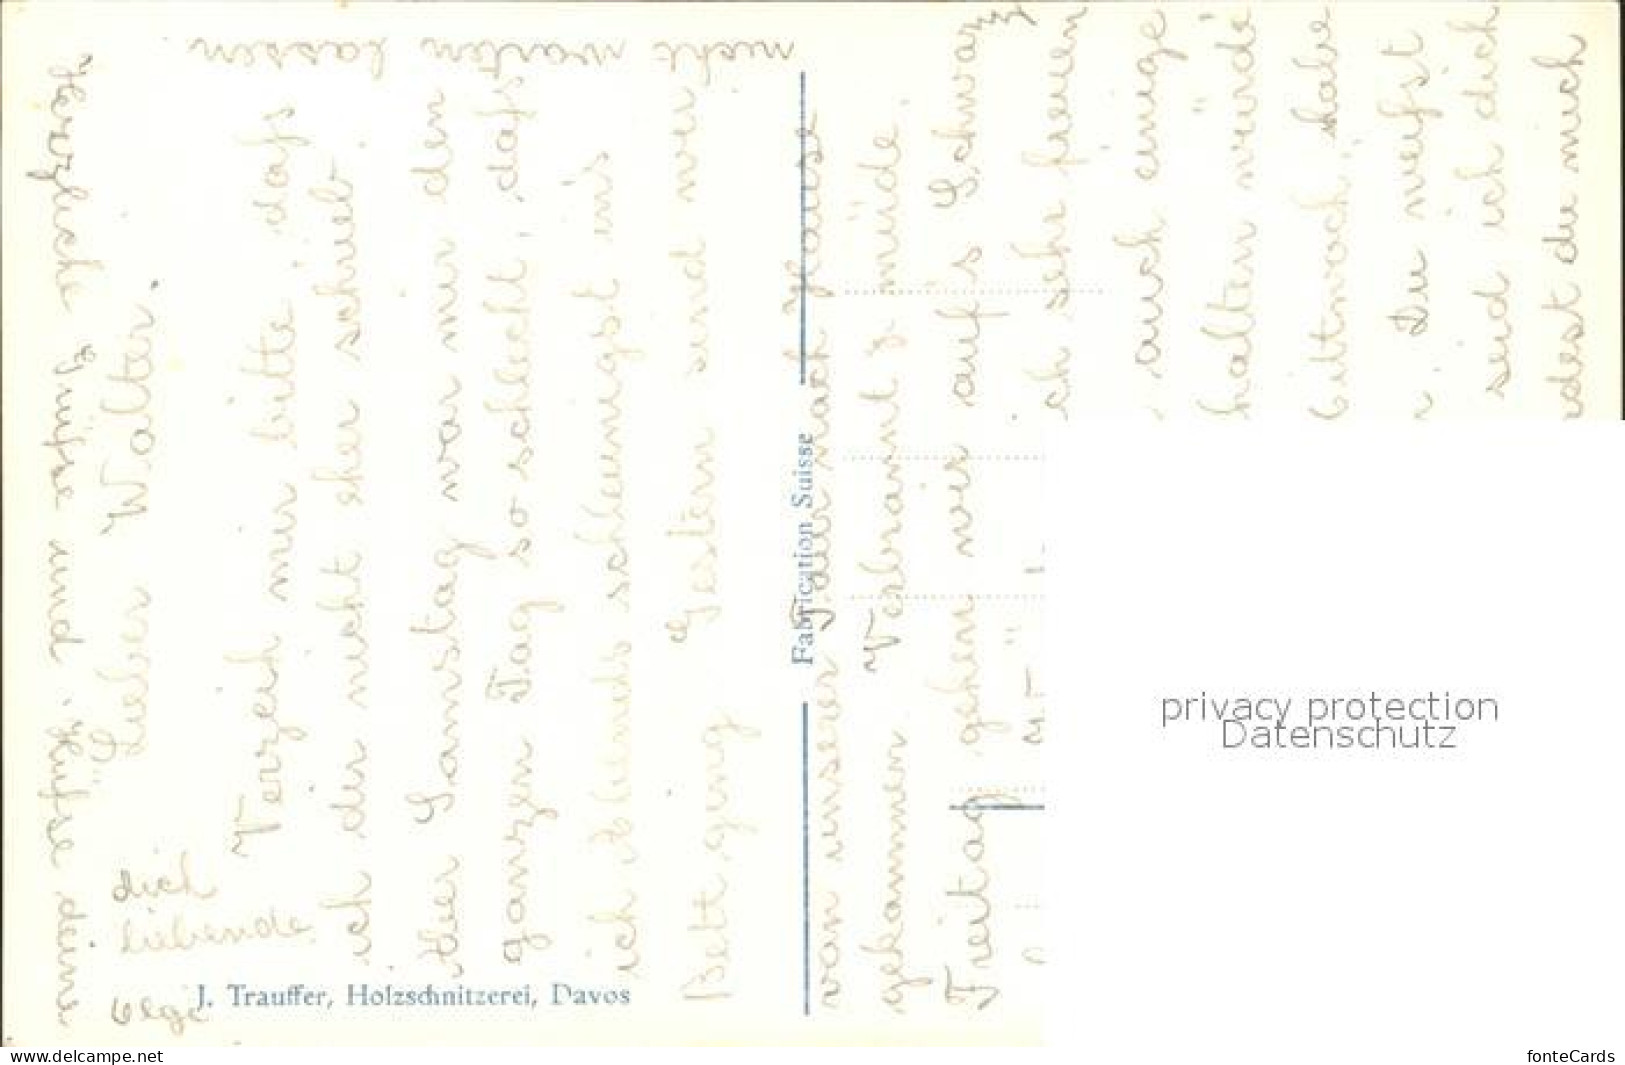 Lieber Walter.
Verzeih mir bitte dass
ich dir nicht eher schrieb.
Samstag war mir den
ganzen Tag so schlecht, dass
ich Abends schleunigst ins
Bett ging. Gestern sind wir
von unserer Tour nach Hause
gekommen. Verbrannt & müde.
Freitag gehen wir aufs Schwarz
ich sehr freuen
auch einige
halten würde
habe
Du weisst
seid ich dich
dest du mich
nicht warten lassen
Herzliche Grüsse und Küsse deine
dich
liebende
Olga
Fabrication Suisse
J. Trauffer, Holzschnitzerei, Davos
privacy protection
Datenschutz
www.delcampe.net
fonteCards